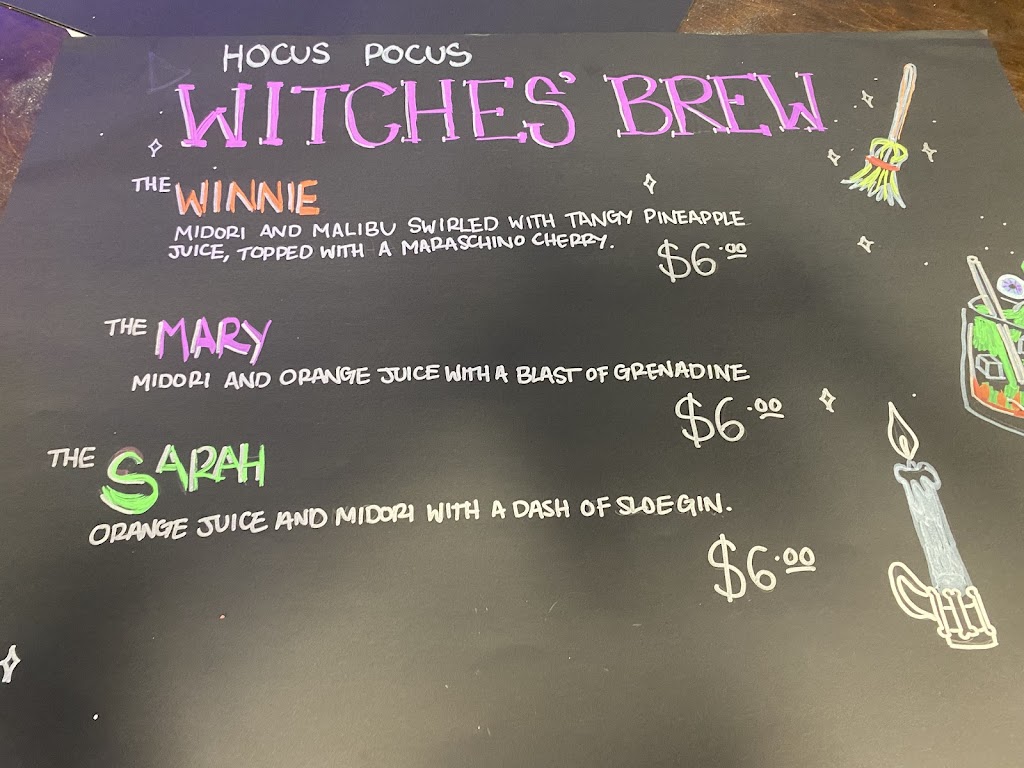 HOCUS POCUS
WITCHES' BREW
THE WINNIE
MIDORI AND MALIBU SWIRLED WITH TANGY PINEAPPLE
JUICE, TOPPED WITH A MARASCHINO CHERRY.
$6.00
THE MARY
MIDORI AND ORANGE JUICE WITH A BLAST OF GRENADINE
$6.00
THE SARAH
ORANGE JUICE AND MIDORI WITH A DASH OF SLOE GIN.
$6.00